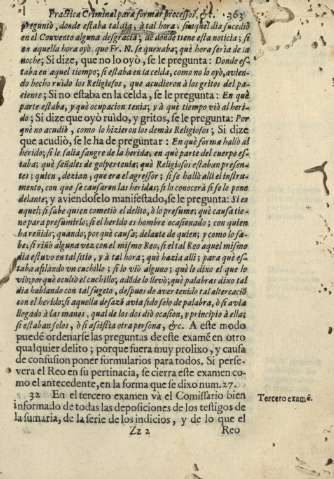 Practica Criminal para formar processos, &c. 363
pregunta, donde estaba tal dia, à tal hora: supo, que al dia sucediò
en el Convento alguna desgracia; de donde tiene esta noticia; si
en aquella hora oyò, que Fr. N. se quexaba; què hora seria de la
noche; Si dize, que no lo oyò, se le pregunta: Donde es-
taba en aquel tiempo; si estaba en la celda, como no lo oyò, avien-
do hecho ruìdo los Religiosos, que acudieron à los gritos del pa-
ciente; Si no estaba en la celda, se le pregunta: En què
parte estaba, y què ocupacion tenia; y à què tiempo viò al heri-
do; Si dize que oyò ruìdo, y gritos, se le pregunta: Por
què no acudiò, como lo hizieron los demàs Religiosos; Si dize
que acudiò, se le ha de preguntar: En què forma hallò al
herido; si le salìa sangre de la herida, en què parte del cuerpo es-
taba; què señales de golpe tenia; què Religiosos estaban presen-
tes; quien, dezian, que era el agressor; si se hallò allì el instru-
mento, con que se causaron las heridas; si lo conocerà si se lo pone
delante; y aviendoselo manifestado, se le pregunta: Si es
aquel; si sabe quien cometiò el delito, ò lo presume; què causa tie-
ne para presumirlo; si el herido es hombre ocasionado; con quien
ha reñido; quando, por què causa; delante de quien; y como lo sa-
be; si riñò alguna vez con el mismo Reo; si el tal Reo aquel mismo
dia estuvo en tal sitio, y à tal hora; què hazia allì; para què es-
taba afilando un cuchillo; si lo viò alguno; què le dixo el que lo
viò; por què ocultò el cuchillo; adòde lo llevò; què palabras dixo tal
dia hablando con tal sugeto, despues de aver tenido tal altercaciò
con el herido; si aquella desazò avia sido solo de palabra, ò si avia
llegado à las manos, qual de los dos diò ocasion, y principio à ella;
si estaban solos, ò si assistia otra persona, &c. A este modo
puede ordenarse las preguntas de este examè en otro
qualquier delito; porque fuera muy prolixo, y causa
de confusion poner formularios para todos. Si perse-
vera el Reo en su pertinacia, se cierra este examen co-
mo el antecedente, en la forma que se dixo num. 27.
32 En el tercero examen và el Comissario bien
Tercero examè.
informado de todas las deposiciones de los testigos de
la sumaria, de la serie de los indicios, y de lo que el
Zz 2
Reo